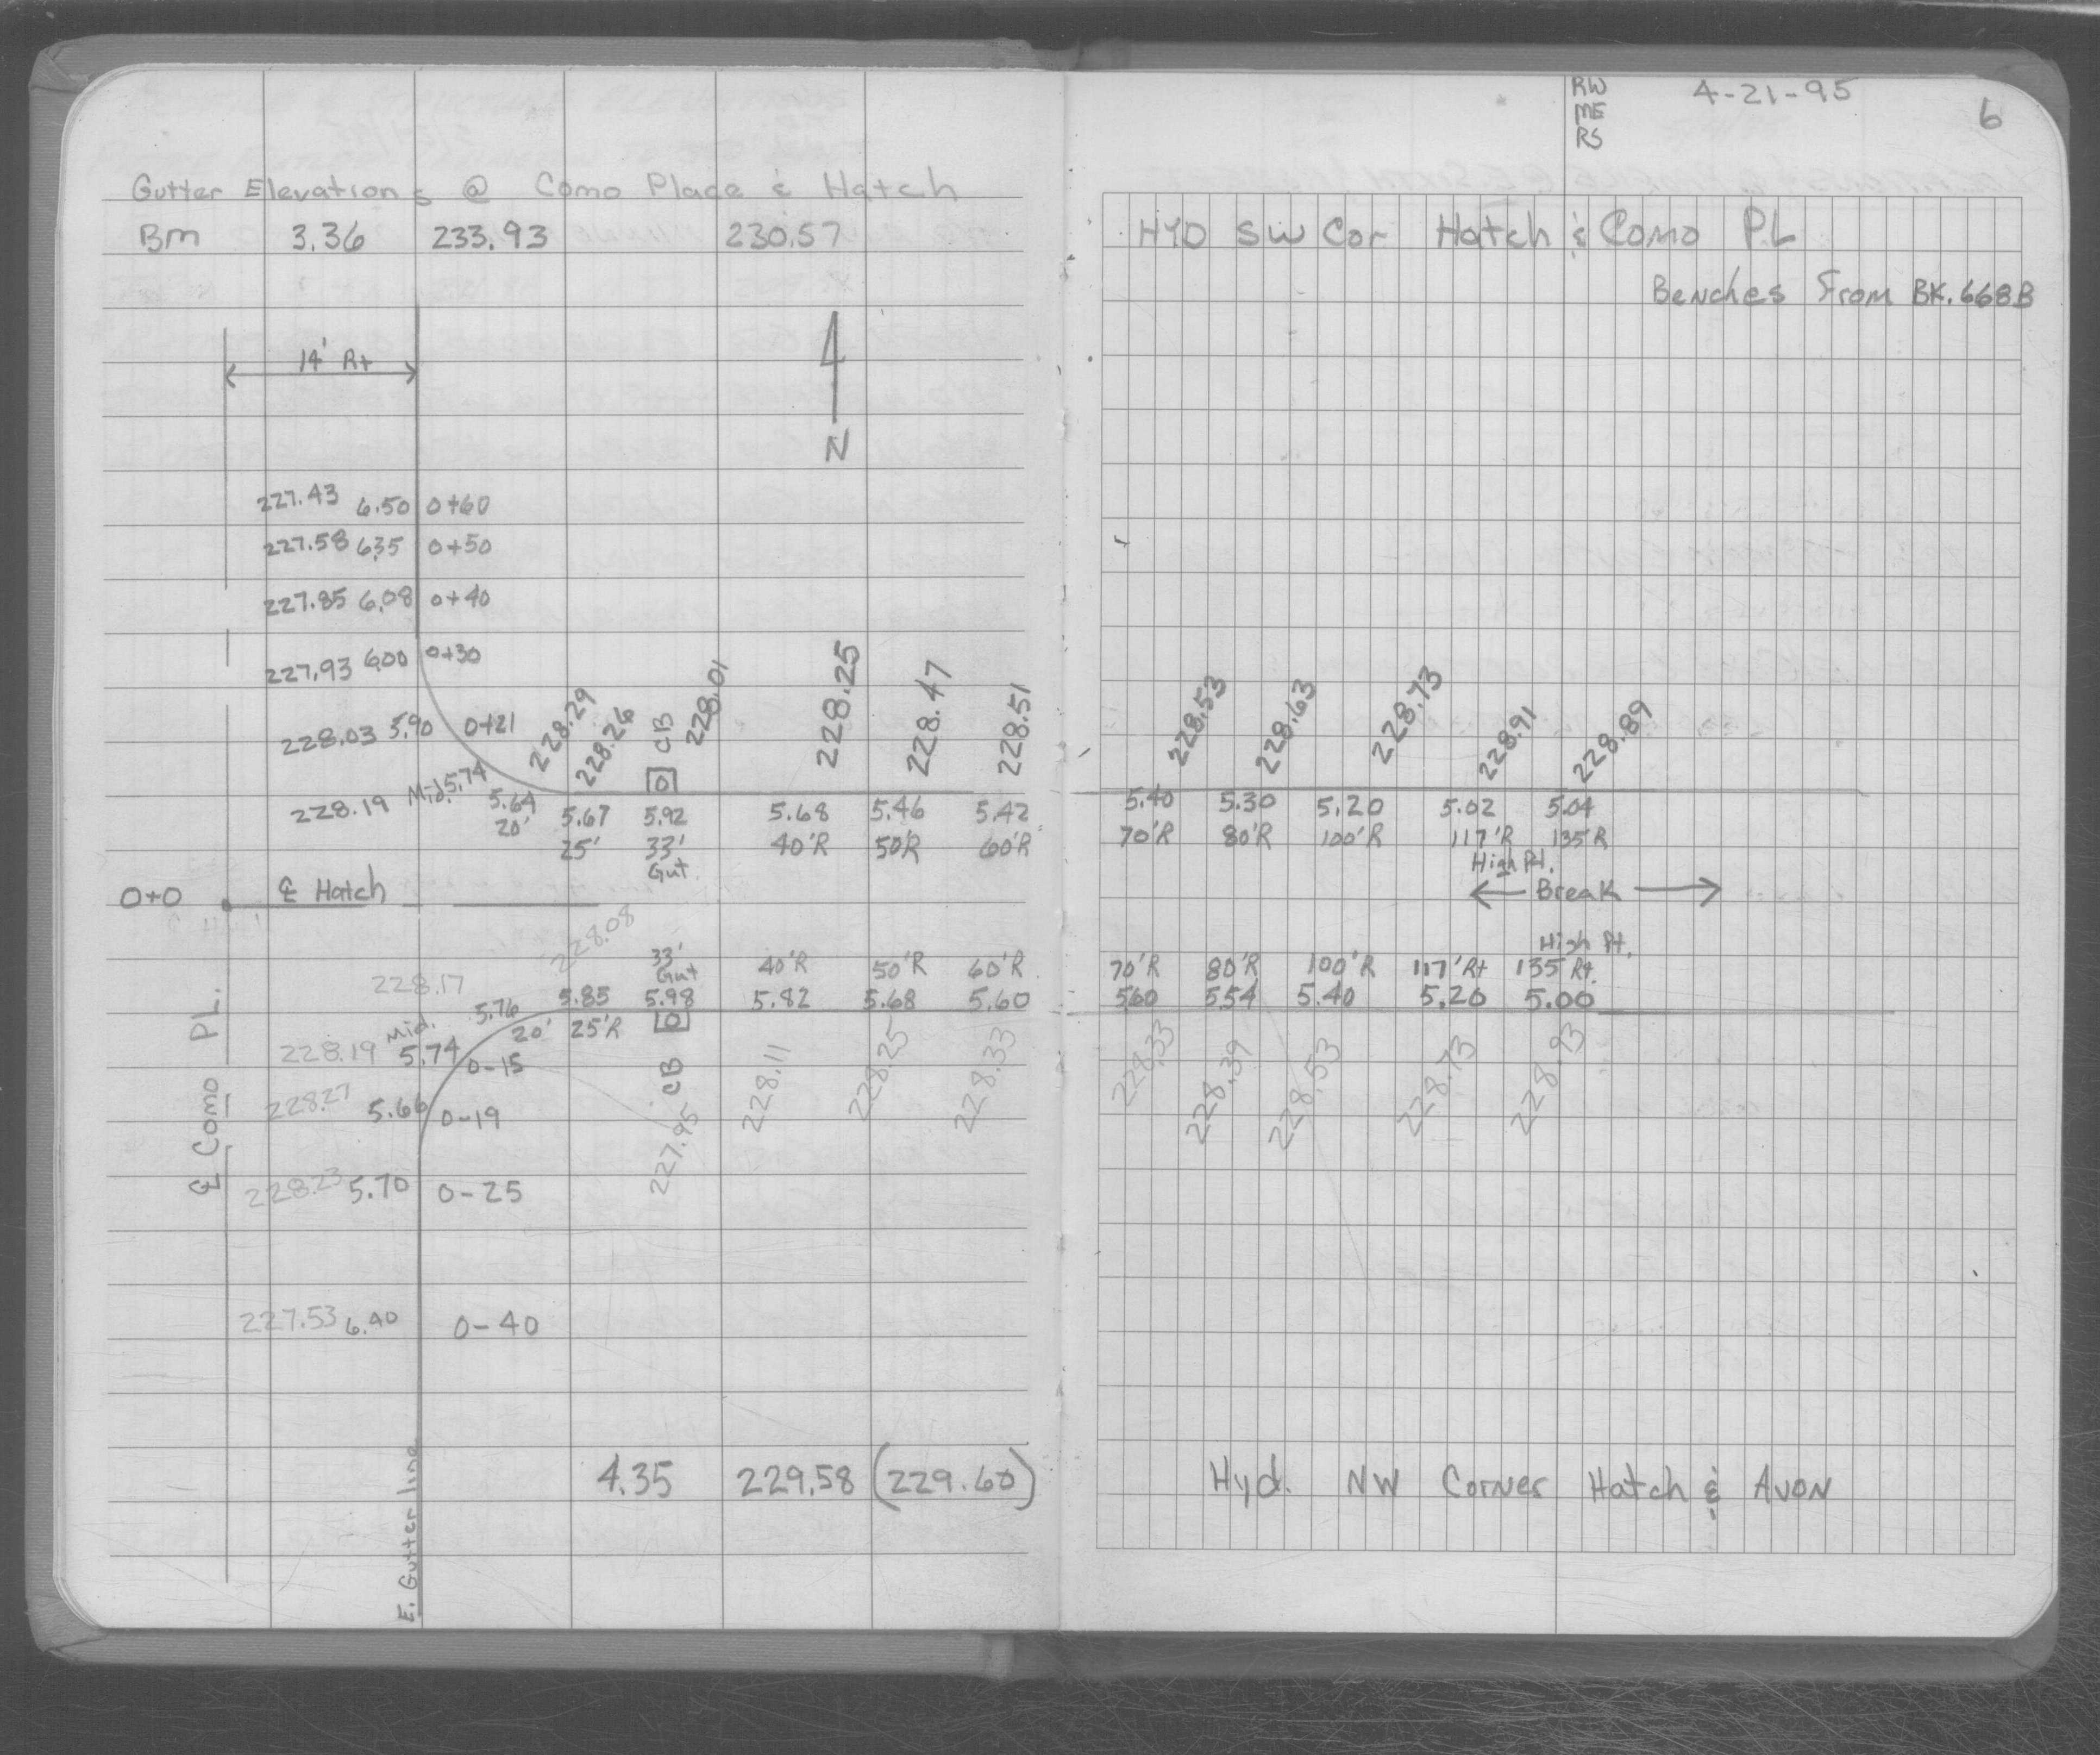 Gutter Elevations @ Como Place & Hatch
BM 3.36 233.93 230.57
14' Rt
N
227.43 6.50 0+60
227.58 6.35 0+50
227.85 6.08 0+40
227.93 6.00 0+30
228.03 5.90 0+21
228.19 Mid. 5.74
228.29 228.26 CB 228.01 228.25 228.47 228.51
5.64 5.67 5.92 5.68 5.46 5.42
20' 25' 33' 40'R 50'R 60'R
Gut.
0+0 ℄ Hatch
228.08
33' 40'R 50'R 60'R
Gut
228.17 5.76 5.85 5.98 5.82 5.68 5.60
20' 25'R
228.19 Mid. 5.74 0-15
CB
227.95 228.11 228.25 228.33
228.27 5.66 0-19
228.23 5.70 0-25
227.53 6.40 0-40
℄ Como PL.
E. Gutter line
4.35 229.58 (229.60)
RW
ME
RS
4-21-95
6
HYD SW Cor Hatch & Como PL
Benches From BK. 668B
228.53 228.63 228.73 228.91 228.89
5.40 5.30 5.20 5.02 5.04
70'R 80'R 100'R 117'R 135'R
High Pt.
Break
High Pt.
70'R 80'R 100'R 117'Rt 135'Rt
5.60 5.54 5.40 5.20 5.00
228.33 228.39 228.53 228.73 228.93
Hyd. NW Corner Hatch & Avon